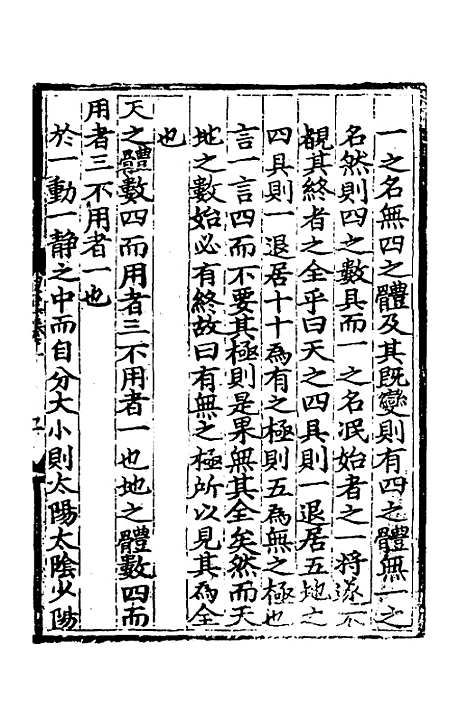 一之名無四之體及其既變則有四之體無一之
名然則四之數具而一之名泯始者之一將遂不
覩其終者之全乎曰天之四具則一退居五地之
四具則一退居十十為有之極則五為無之極也
言一言四而不要其極則是果無其全矣然而天
地之數始必有終故曰有無之極所以見其為全
也
天之體數四而用者三不用者一也地之體數四而
用者三不用者一也
於一動一靜之中而自分大小則太陽太陰少陽